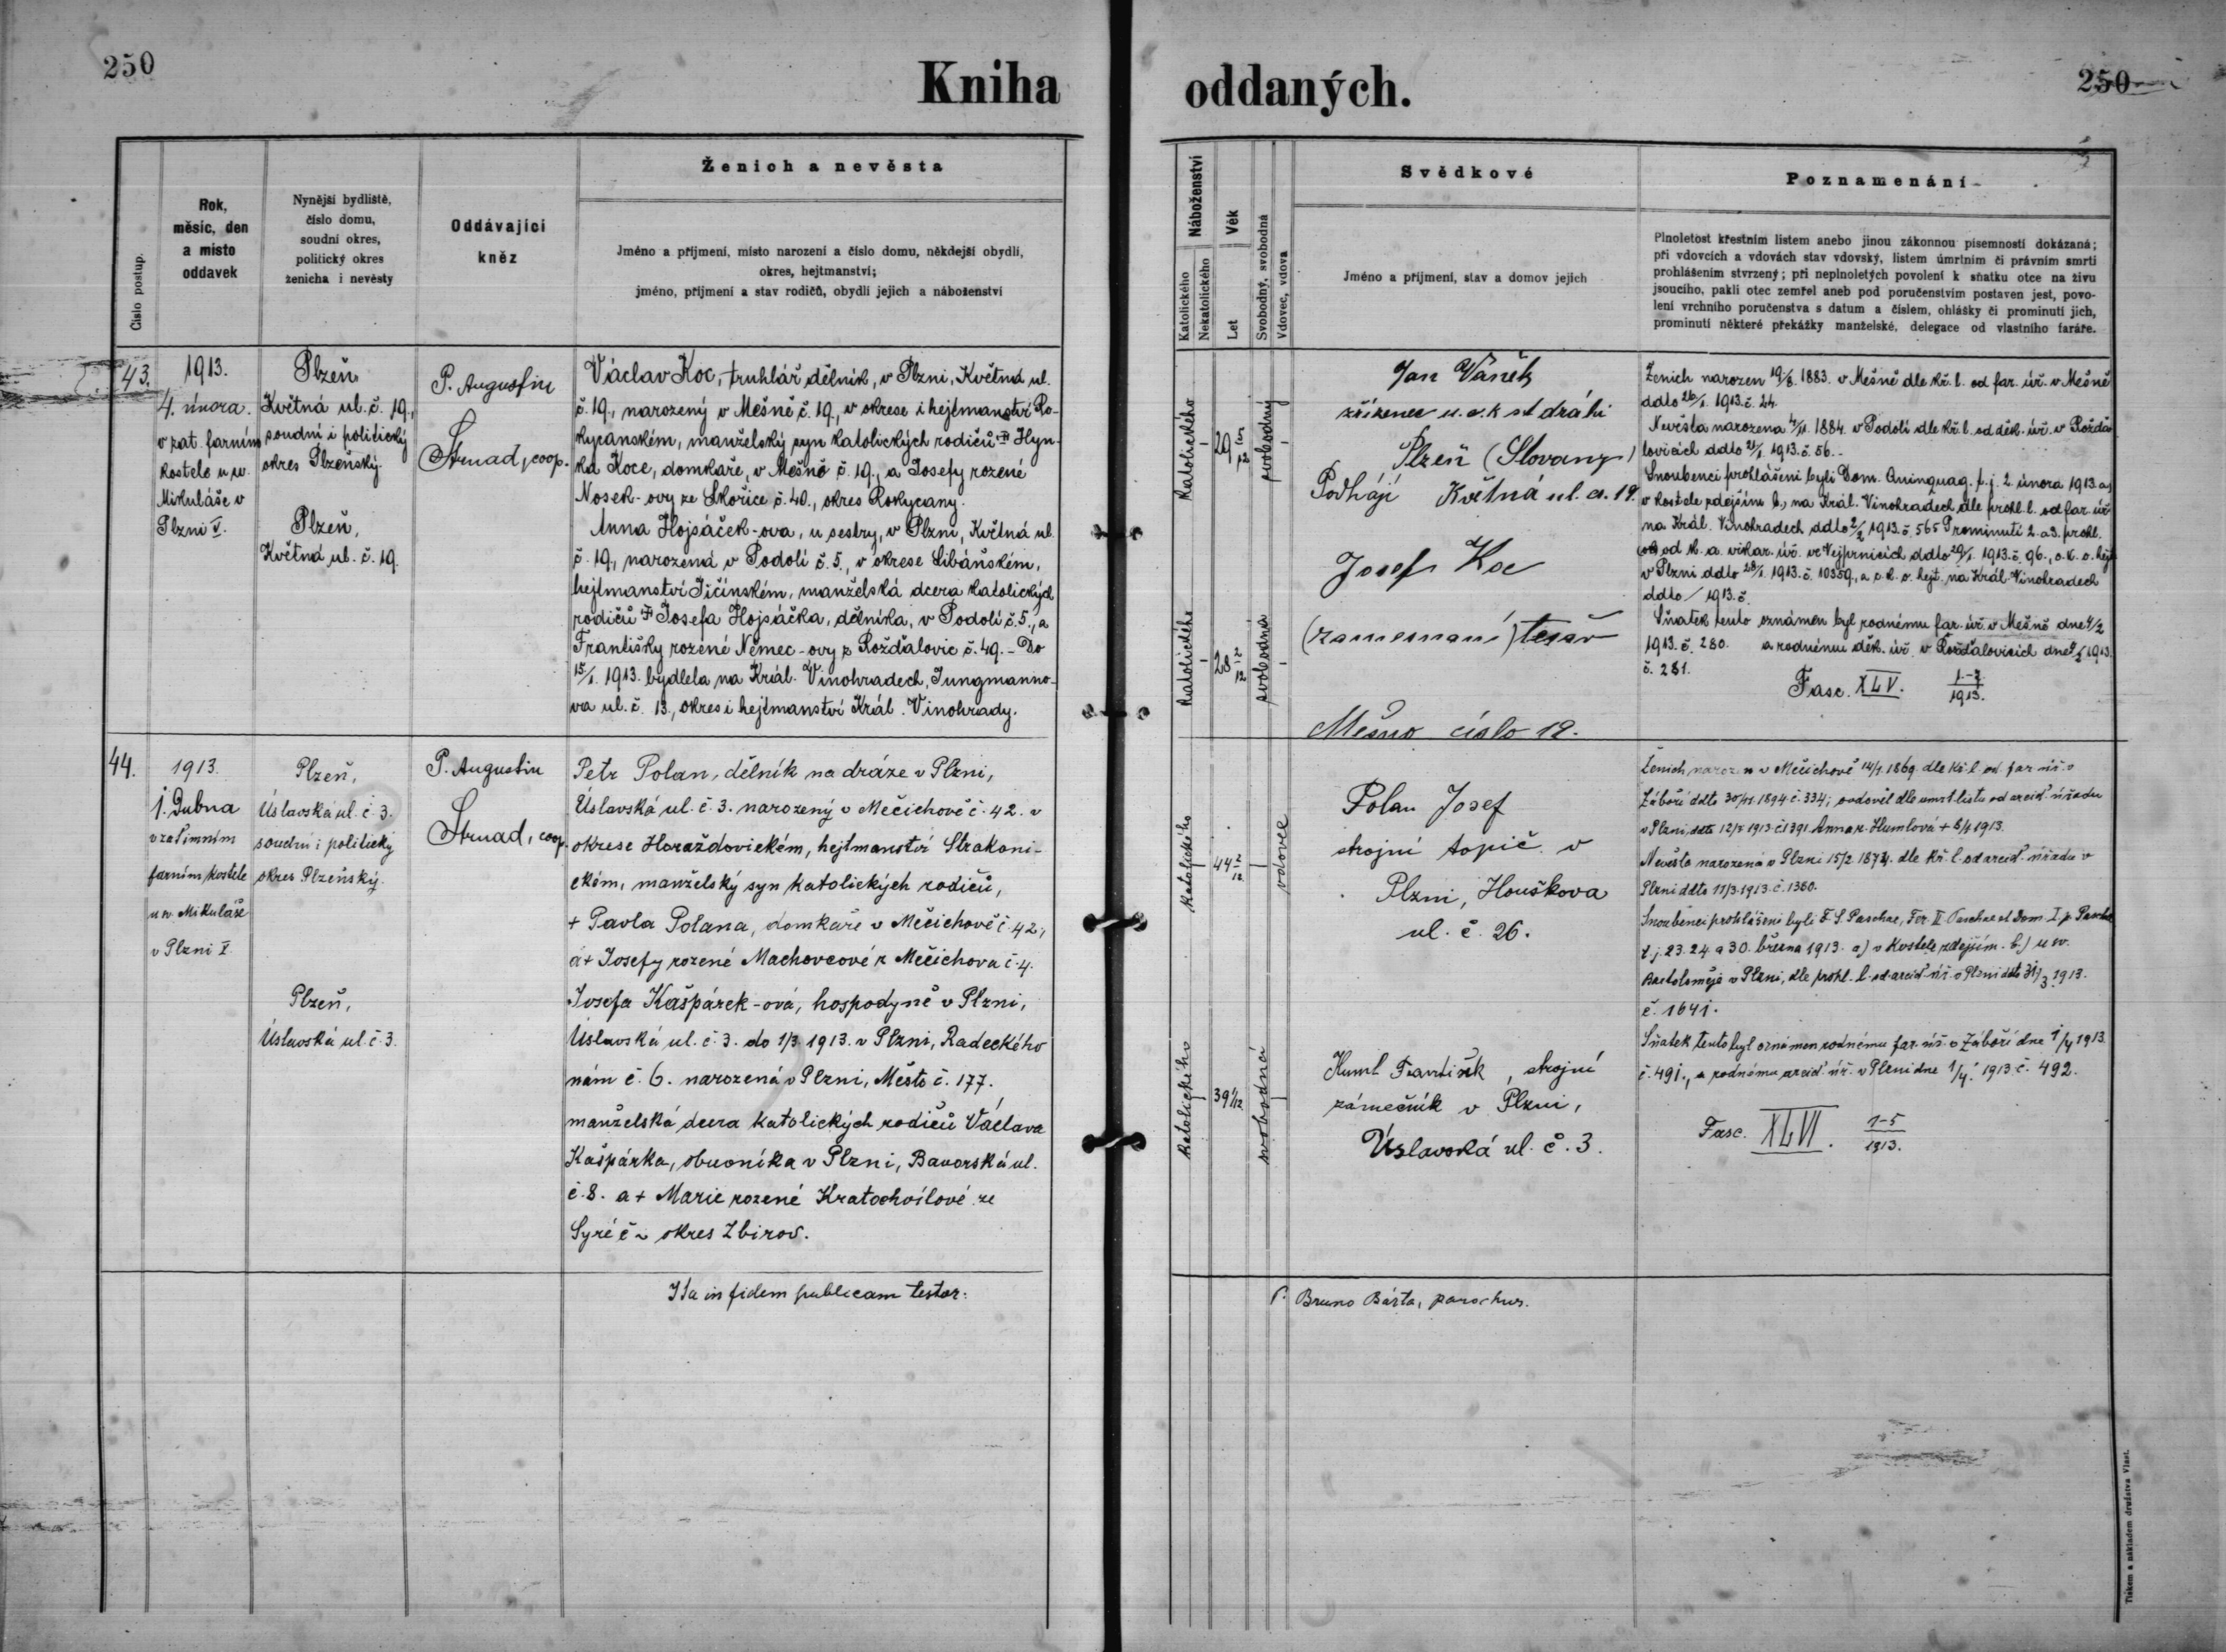 250
Kniha
oddaných.
250
Číslo postup.
Rok,
měsíc, den
a místo
oddavek
Nynější bydliště,
číslo domu,
soudní okres,
politický okres
ženicha i nevěsty
Oddávající
kněz
Ženich a nevěsta
Jméno a příjmení, místo narození a číslo domu, někdejší obydlí,
okres, hejtmanství;
jméno, příjmení a stav rodičů, obydlí jejich a náboženství
Náboženství
Katolického
Nekatolického
Věk
Let
Svobodný, svobodná
Vdovec, vdova
Svědkové
Jméno a příjmení, stav a domov jejich
Poznamenání
Plnoletost křestním listem anebo jinou zákonnou písemností dokázaná;
při vdovcích a vdovách stav vdovský, listem úmrtním či právním smrti
prohlášením stvrzený; při neplnoletých povolení k sňatku otce na živu
jsoucího, pakli otec zemřel aneb pod poručenstvím postaven jest, povo-
lení vrchního poručenstva s datum a číslem, ohlášky či prominutí jich,
prominutí některé překážky manželské, delegace od vlastního faráře.
43.
1913.
4. února.
v zat. farním
kostele u sv.
Mikuláše v
Plzni V.
Plzeň
Květná ul. č. 19.,
soudní i politický
okres Plzeňský.
Plzeň,
Květná ul. č. 19.
P. Augustin
Strnad, coop.
Václav Koc, truhlář dělník, v Plzni, Květná ul.
č. 19., narozený v Mešně č. 19., v okrese i hejtmanství Ro-
kycanském, manželský syn katolických rodičů Hyn-
ka Koce, domkaře, v Mešně č. 19., a Josefy rozené
Nosek-ovy ze Skořice č. 40., okres Rokycany.
Anna Hojsáček-ova, u sestry, v Plzni, Květná ul.
č. 19., narozená v Podolí č. 5., v okrese Libáňském,
hejtmanství Jičínském, manželská dcera katolických
rodičů Josefa Hojsáčka, dělníka, v Podolí č. 5., a
Františky rozené Němec-ovy z Rožďalovic č. 49. - Do
15/1. 1913. bydlela na Král. Vinohradech, Jungmanno-
va ul. č. 13., okres i hejtmanství Král. Vinohrady.
Katolického
29
svobodný
Katolického
28 2/12
svobodná
Jan Vaněk
zřízenec u. c. k. st dráhi
Plzeň (Slovany)
Podhájí Květná ul. č. 19.
Josef Koc
(zaměstnání) tesař
Mešno číslo 19.
Ženich narozen 19/8. 1883. v Mešně dle kř. l. od far. úř. v Mešně
ddto 26/1. 1913. č. 24.
Nevěsta narozena 4/11. 1884. v Podolí dle kř. l. od děk. úř. v Rožďa
lovicích ddto 21/1. 1913. č. 56. -
Snoubenci prohlášeni byli Dom. Quinquag. t. j. 2. února 1913. a)
v kostele zdejším b., na Král. Vinohradech dle prohl. l. od far. úř.
na Král. Vinohradech ddto 2/2 1913. č. 565 Prominutí 2. a 3. prohl.
od k. a. vikar. úř. ve Vejprnicích ddto 29/1. 1913. č. 96., c. k. o. hejt.
v Plzni ddto 28/1. 1913. č. 10359., a c. k. o. hejt. na Král. Vinohradech
ddto / 1913. č.
Sňatek tento oznámen byl rodnému far. úř. v Mešně dne 4/2
1913. č. 280. a rodnému děk. úř. v Rožďalovicích dne 4/2 1913.
č. 281.
Fasc. XLV. 1-7/1913.
44.
1913.
1. Dubna
v zatímním
farním kostele
u sv. Mikuláše
v Plzni V.
Plzeň,
Úslavská ul. č. 3.
soudní i politický
okres Plzeňský.
Plzeň,
Úslavská ul. č. 3.
P. Augustin
Strnad, coop.
Petr Polan, dělník na dráze v Plzni,
Úslavská ul. č. 3. narozený v Mečichově č. 42. v
okrese Horažďovickém, hejtmanství Strakoni-
ckém, manželský syn katolických rodičů,
+ Pavla Polana, domkaře v Mečichově č. 42.,
a + Josefy rozené Machovcové z Mečichova č. 4.
Josefa Kašpárek-ová, hospodyně v Plzni,
Úslavská ul. č. 3. do 1/3. 1913. v Plzni, Radeckého
nám č. 6. narozená v Plzni, Město č. 177.
manželská dcera katolických rodičů Václava
Kašpárka, obuvníka v Plzni, Bavorská ul.
č. 8. a + Marie rozené Kratochvílové ze
Syré č ~ okres Zbirov.
Katolického
44 2/12
vdovec
Katolického
39 1/12
svobodná
Polan Josef
strojní topič v
Plzni, Houškova
ul. č. 26.
Huml František, strojní
zámečník v Plzni,
Úslavská ul. č. 3.
Ženich narozen v Mečichově 14/1. 1869 dle kř. l. od far. úř. v
Záboří ddto 30/11. 1894 č. 334; ovdověl dle úmrt. listu od arcid. úřadu
v Plzni ddto 12/3 1913 č. 1391. Anna r. Humlová + 8/1 1913.
Nevěsta narozena v Plzni 15/2 1874. dle kř. l. od arcid. úřadu v
Plzni ddto 11/3. 1913. č. 1360.
Snoubenci prohlášeni byli F. S. Paschae, Fer. II. Paschae et Dom. I. p. Pascha
t. j. 23. 24. a 30. března 1913. a) v kostele zdejším. b.) u sv.
Bartoloměje v Plzni, dle prohl. l. od arcid. úř. v Plzni ddto 31/3 1913.
č. 1641.
Sňatek tento byl oznámen rodnému far. úř. v Záboří dne 1/4 1913.
č. 491., a rodnému arcid. úř. v Plzni dne 1/4. 1913 č. 492.
Fasc. XLVI. 1-5/1913.
Ita in fidem publicam testor:
P. Bruno Bárta, parochus.
Tiskem a nákladem družstva Vlast.